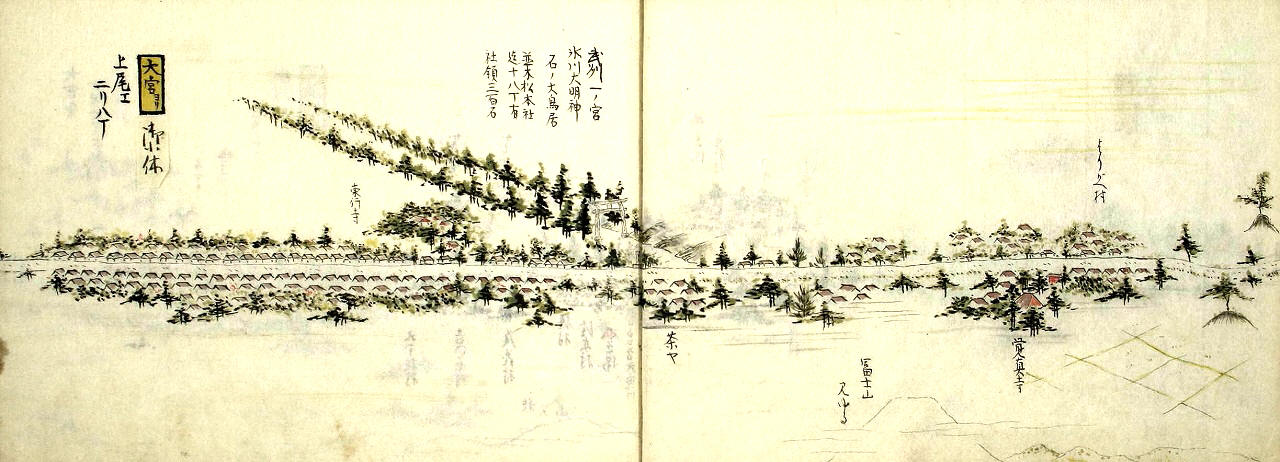 よりかへ村
覚真寺
冨士山
見ゆる
茶ヤ
武列一ノ宮
氷川大明神
石ノ大鳥居
並木松本社
迄十八丁有
社領三百石
東行寺
大宮ヨリ
御休
上尾エ
二リ八丁